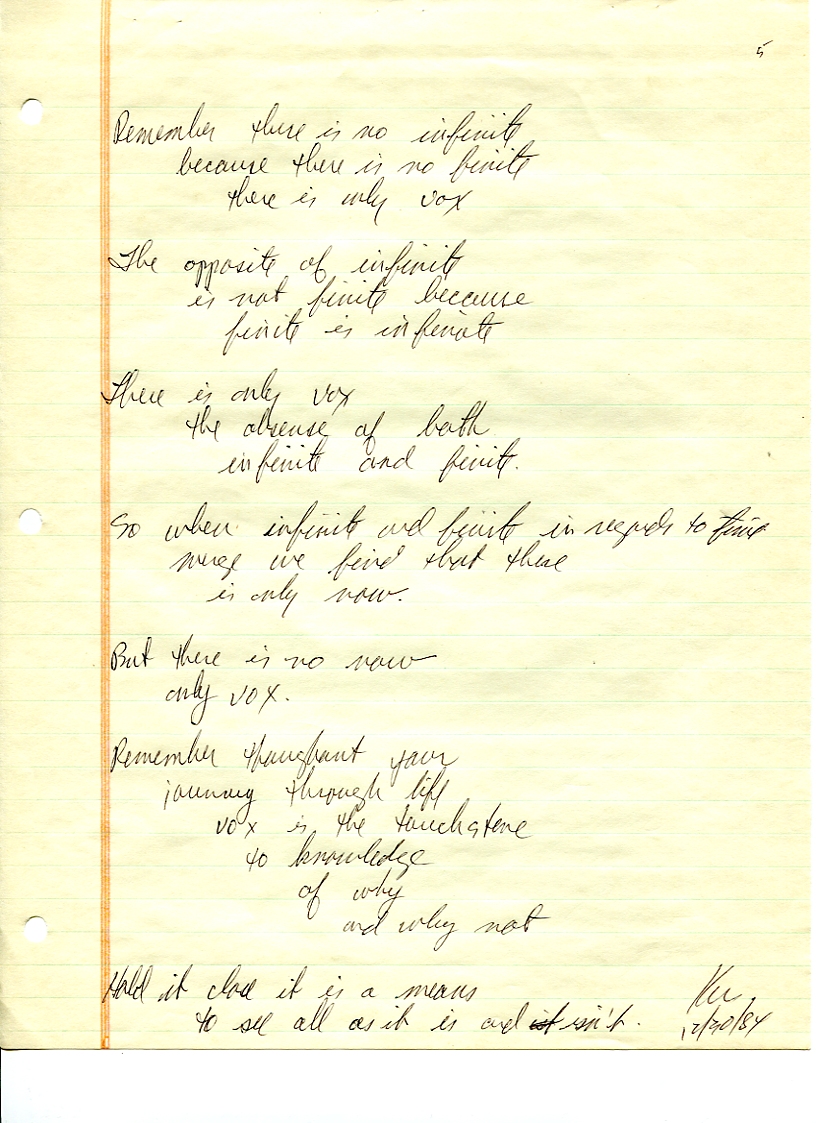 5
Remember there is no infinite
because there is no finite
there is only vox
The opposite of infinite
is not finite because
finite is infinate
There is only vox
the absense of both
infinite and finite.
So when infinite and finite in regards to time
merge we find that there
is only now.
But there is no now
only vox.
Remember throughout your
journey through life
vox is the touchstone
to knowledge
of why
and why not
Hold it close it is a means
to see all as it is and isn't.
12/30/84